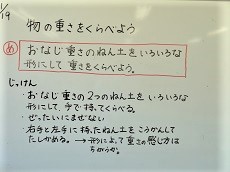 1/19
物の重さをくらべよう
め おなじ重さのねん土をいろいろな
形にして重さをくらべよう。
じっけん
・おなじ重さの2つのねん土をいろいろな
形にして、手で持ってくらべる。
・ぜったいにまぜない
・右手と左手に持ったねん土をこうかんして
たしかめる。→形によって重さの感じ方は
ちがうか。